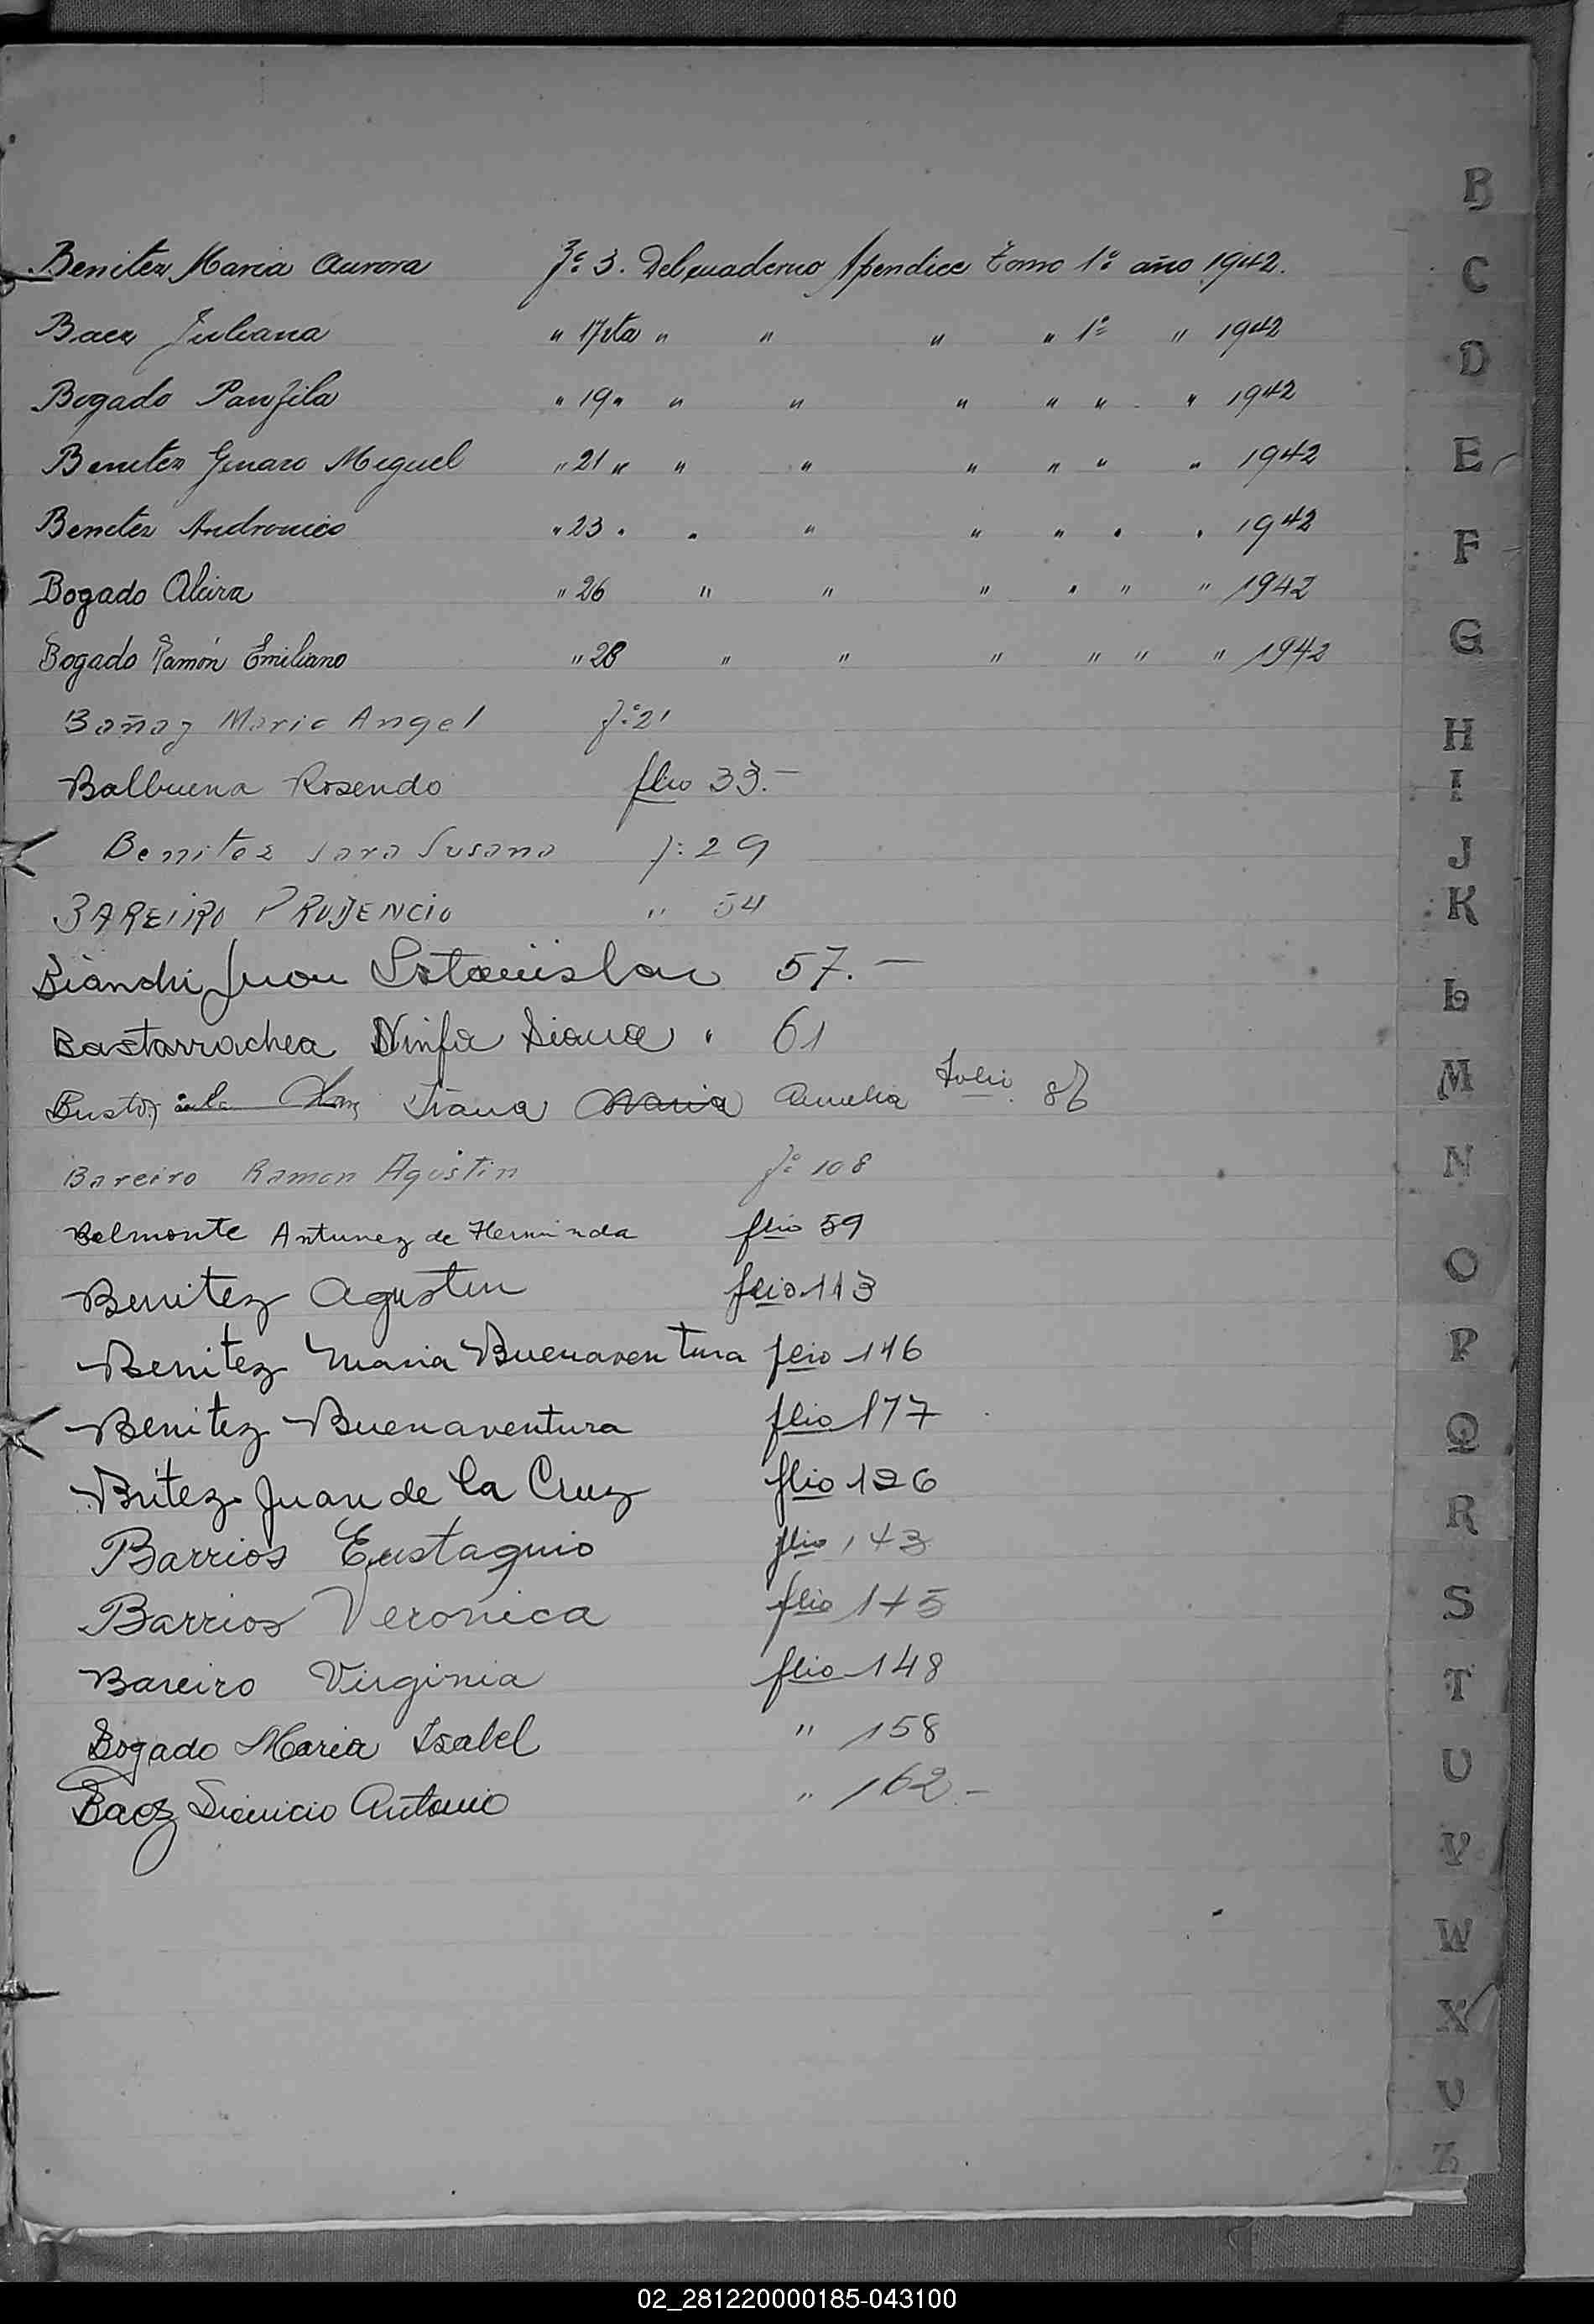 Benitez Maria Aurora Fº 3. Del cuaderno Apendice Tomo 1º año 1942.
Baez Juliana " 17vta " " " " 1º " 1942
Bogado Panfila " 19 " " " " " " " 1942
Benitez Genaro Miguel " 21 " " " " " " " 1942
Benitez Andronico " 23 " " " " " " " 1942
Bogado Alcira " 26 " " " " " " 1942
Bogado Ramón Emiliano " 28 " " " " " " 1942
Bañaz Mario Angel fº 21
Balbuena Rosendo flio 33.-
Benitez Sara Susana f: 29
BAREIRO PRUDENCIO " 54
Bianchi Juan Estanislao 57.-
Bastarrachea Ninfa Diana " 61
Bustos Juana Maria Amelia folio 86
Bareiro Ramon Agustin fº 108
Belmonte Antunez de Herminda flio 59
Benitez Agustin flio 113
Benitez Maria Buenaventura flio 116
Benitez Buenaventura flio 117
Britez Juan de la Cruz flio 126
Barrios Eustaquio flio 143
Barrios Veronica flio 145
Bareiro Virginia flio 148
Bogado Maria Isabel " 158
Baez Dionicio Antonio " 162-
B
C
D
E
F
G
H
I
J
K
L
M
N
O
P
Q
R
S
T
U
V
W
X
Z
02_281220000185-043100